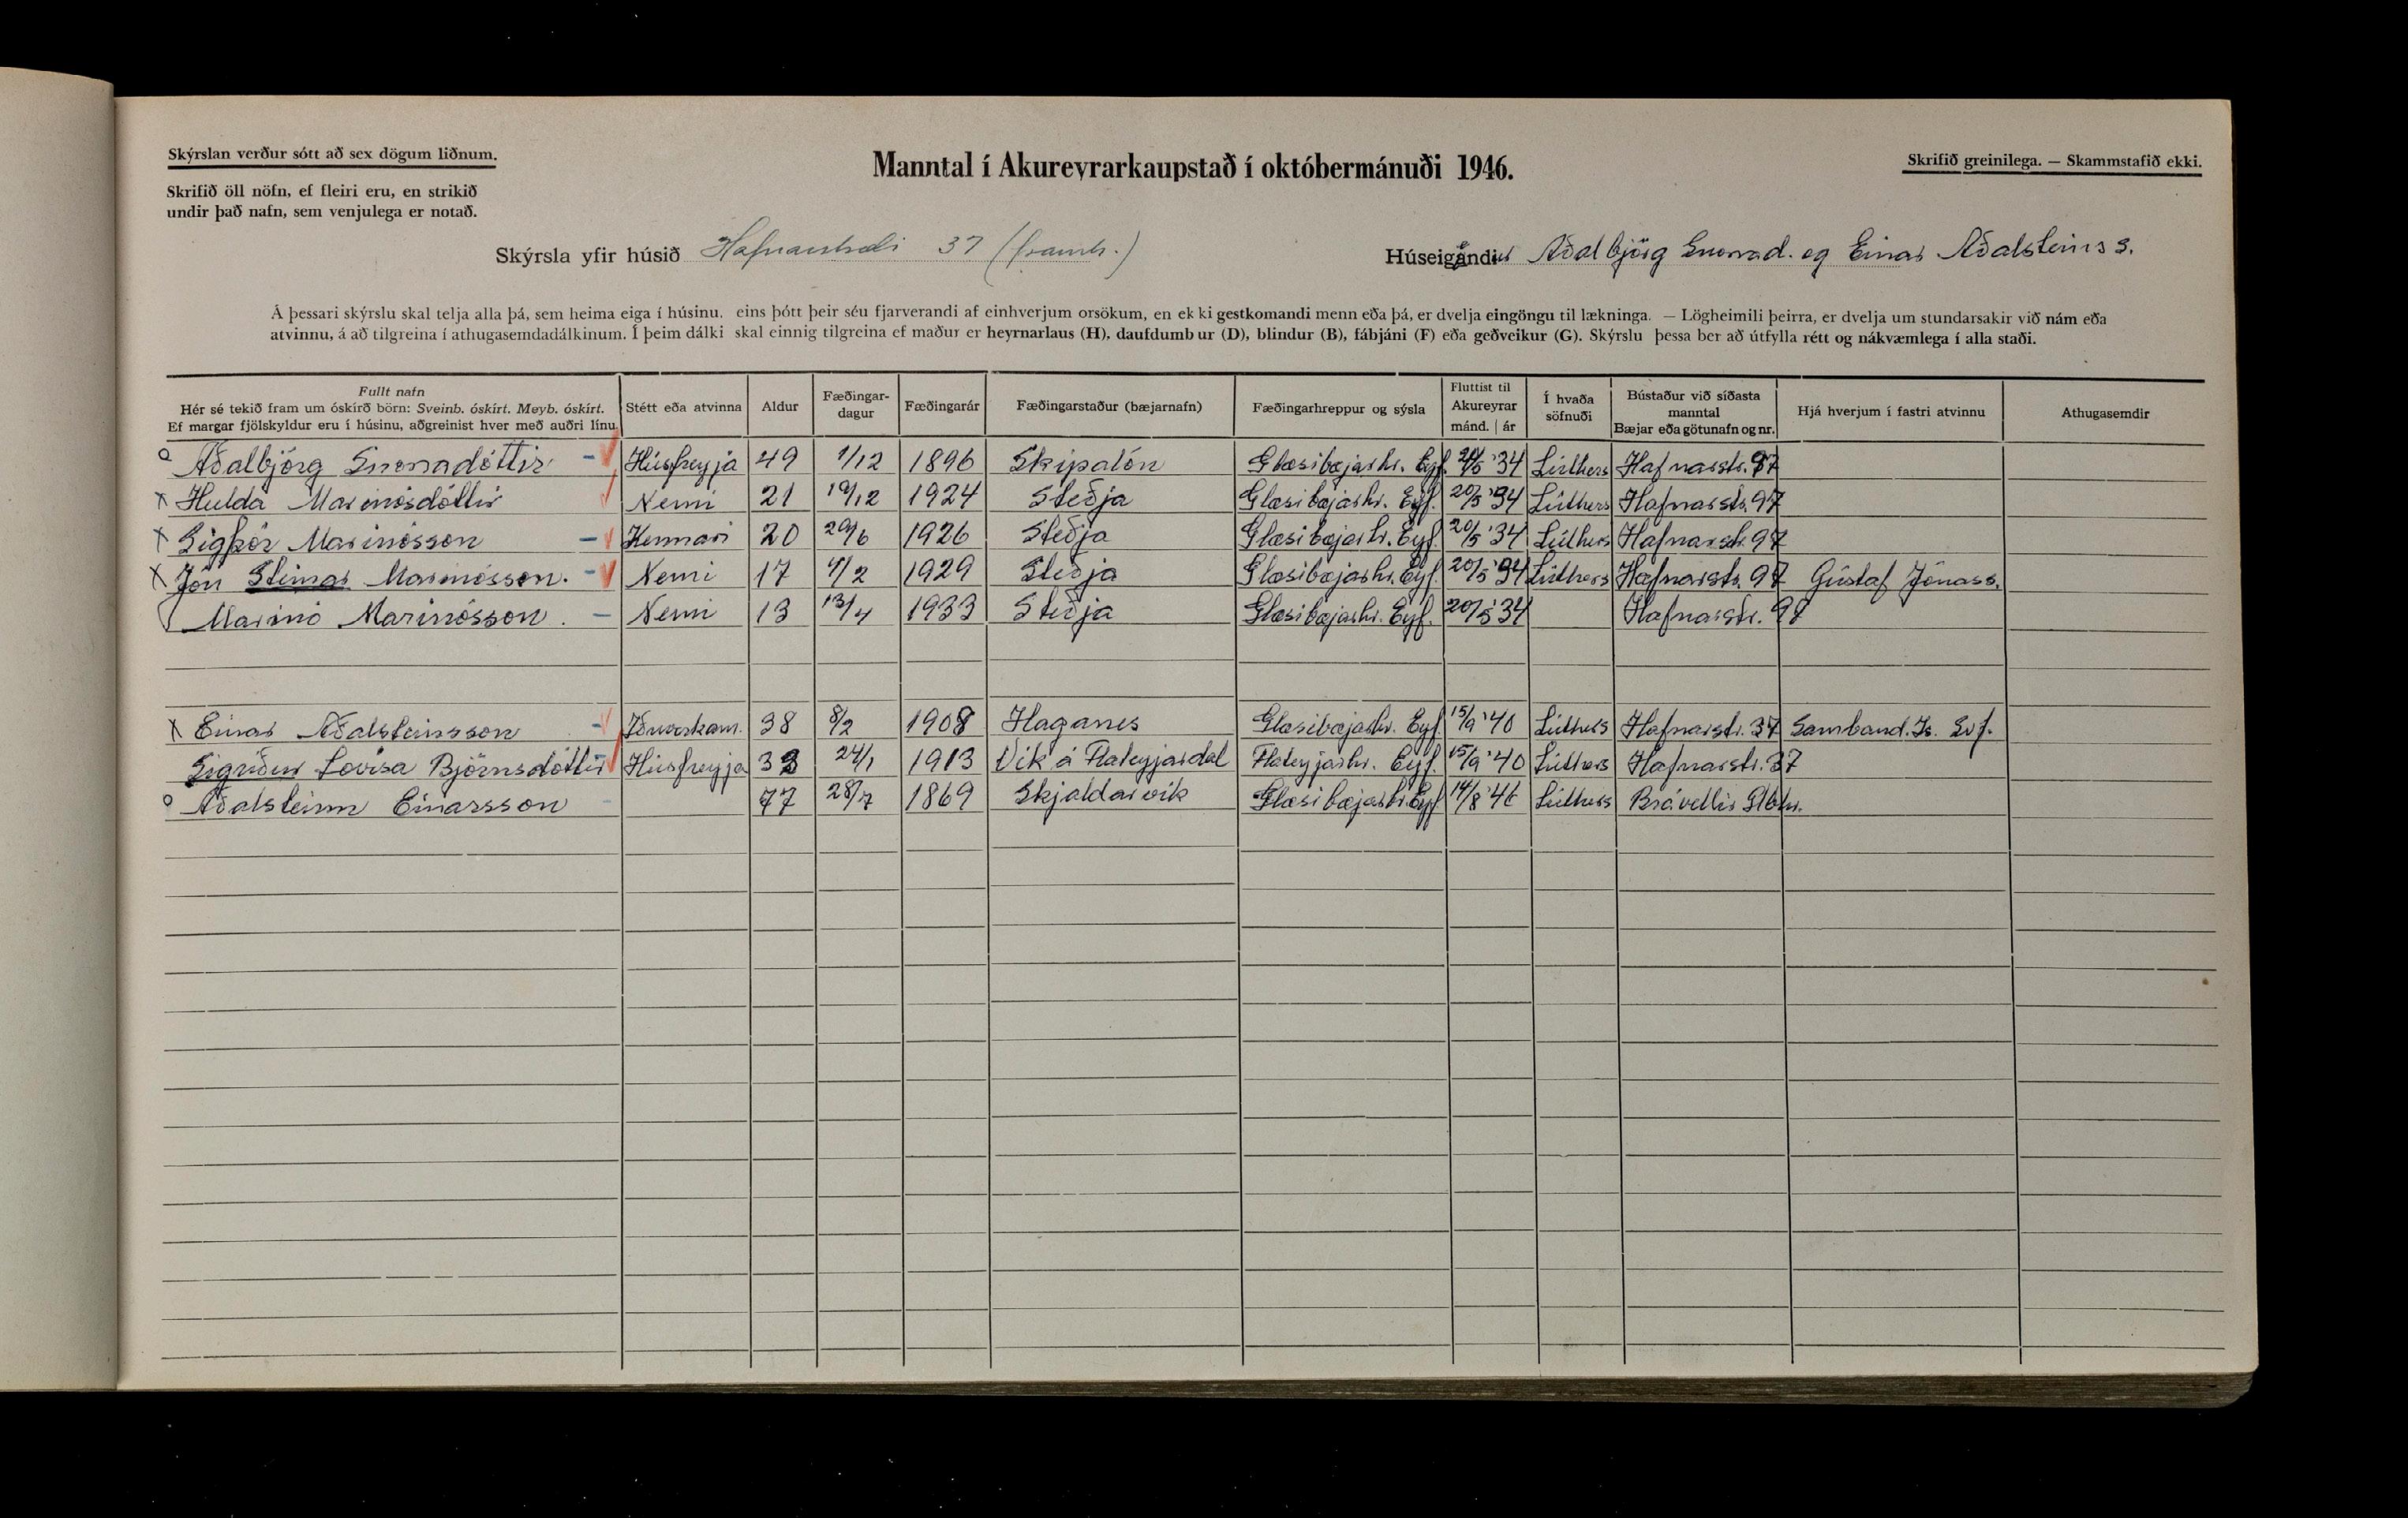 Skýrslan verður sótt að sex dögum liðnum.
Skrifið öll nöfn, ef fleiri eru, en strikið
undir það nafn, sem venjulega er notað.
Manntal í Akureyrarkaupstað í októbermánuði 1946.
Skrifið greinilega. — Skammstafið ekki.
Skýrsla yfir húsið Hafnarstræti 37 (framh.)
Húseigendur Aðalbjörg Snorrad. og Einar Aðalsteinss.
Á þessari skýrslu skal telja alla þá, sem heima eiga í húsinu, eins þótt þeir séu fjarverandi af einhverjum orsökum, en ekki gestkomandi menn eða þá, er dvelja eingöngu til lækninga. — Lögheimili þeirra, er dvelja um stundarsakir við nám eða
atvinnu, á að tilgreina í athugasemdadálkinum. Í þeim dálki skal einnig tilgreina ef maður er heyrnarlaus (H), daufdumbur (D), blindur (B), fábjáni (F) eða geðveikur (G). Skýrslu þessa ber að útfylla rétt og nákvæmlega í alla staði.
Fullt nafn
Hér sé tekið fram um óskírð börn: Sveinb. óskírt. Meyb. óskírt.
Ef margar fjölskyldur eru í húsinu, aðgreinist hver með auðri línu.
Stétt eða atvinna
Aldur
Fæðingar-
dagur
Fæðingarár
Fæðingarstaður (bæjarnafn)
Fæðingarhreppur og sýsla
Fluttist til
Akureyrar
mánd. | ár
Í hvaða
söfnuði
Bústaður við síðasta
manntal
Bæjar eða götunafn og nr.
Hjá hverjum í fastri atvinnu
Athugasemdir
Aðalbjörg Snorradóttir Húsfreyja 49 1/12 1896 Skipalón Glæsibæjarhr. Eyf. '34 Lúthers Hafnarstr. 37
x Hulda Marinósdóttir Nemi 21 19/12 1924 Steðja Glæsibæjarhr. Eyf. 20/5 '34 Lúthers Hafnarstr. 37
x Sigþór Marinósson Kennari 20 29/6 1926 Steðja Glæsibæjarhr. Eyf. 20/5 '34 Lúthers Hafnarstr. 37
x Jón Steinar Marinósson. Nemi 17 4/2 1929 Steðja Glæsibæjarhr. Eyf. 20/5 '34 Lúthers Hafnarstr. 37 Gústaf Jónass.
Marinó Marinósson. Nemi 13 13/4 1933 Steðja Glæsibæjarhr. Eyf. 20/5 '34 Hafnarstr. 37
x Einar Aðalsteinsson Iðnverkam. 38 8/2 1908 Haganes Glæsibæjarhr. Eyf. 15/9 '40 Lúthers Hafnarstr. 37 Samband. Ís. Svf.
Sigríður Lovísa Björnsdóttir Húsfreyja 33 24/1 1913 Vík á Flateyjardal Flateyjarhr. Eyf. 15/9 '40 Lúthers Hafnarstr. 37
o Aðalsteinn Einarsson 77 28/7 1869 Skjaldarvík Glæsibæjarhr. Eyf 14/8 '46 Lúthers Brávellir Glbhr.